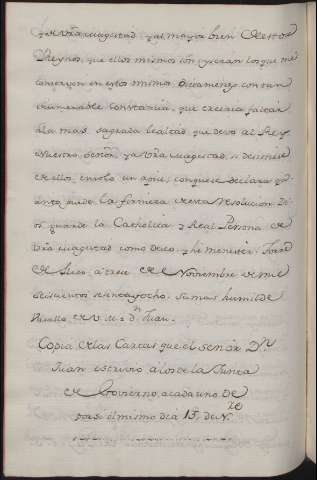 y de Vra Magestad y al mayor bien de estos
Reynos, que ellos mismos son quieran los que me
en estos mismos dictamenes con tan
Constancia, que creeria faltar
a la mas sagrada lealtad, que devo al Rey
Nuestro Señor, y a Vra Magestad, si desviase
de ellos, en solo un apice; conque se declara qu
anto puede la firmeza de esta Resolucion. Di
os guarde la Catholica y Real Persona de
Vra Magestad como deseo y he menester. Torre
de Lleo, a trece de Noviembre de mil
seiscientos sesentayocho. Su mas humilde
Vasallo de V. M. Dn Juan.
Copia de las Cartas que el señor Dn
Juan escrivio a los de la Junta
de Govierno, a cada uno de
por si el mismo dia 13. de N.re